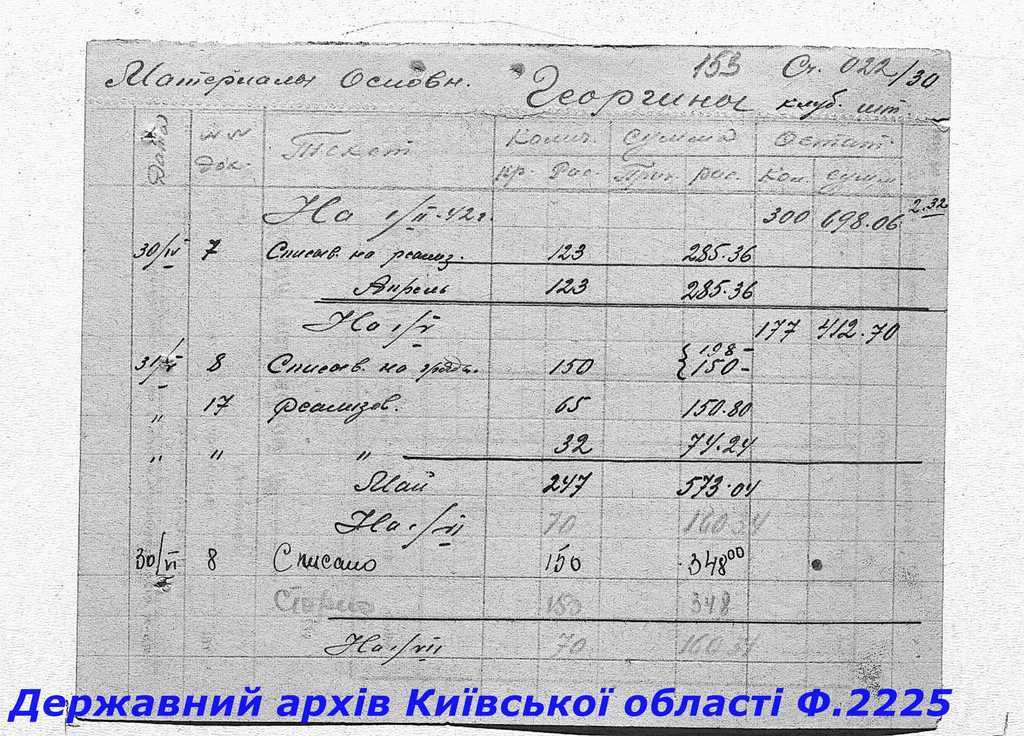 Материалы Основн. Георгины 153 Сч. 022/30
клуб. шт.
Дата №№ док. Текст Колич. Сумма Остат.
пр. Рас. Прих. рас. Кол. сумм.
На 1/II-42г. 300 698.06 2.32
30/IV 7 Списыв. на реализ. 123 285.36
Апрель 123 285.36
На 1/V 177 412.70
198-
31/V 8 Списыв. на 150 150-
" 17 реализов. 65 150.80
" " " 32 74.24
Май 247 573.04
На 1/VI 70 160.34
30/VI 8 Списано 150 348.00
Сторно 150 348
На 1/VII 70 160.34
Державний архів Київської області Ф.2225